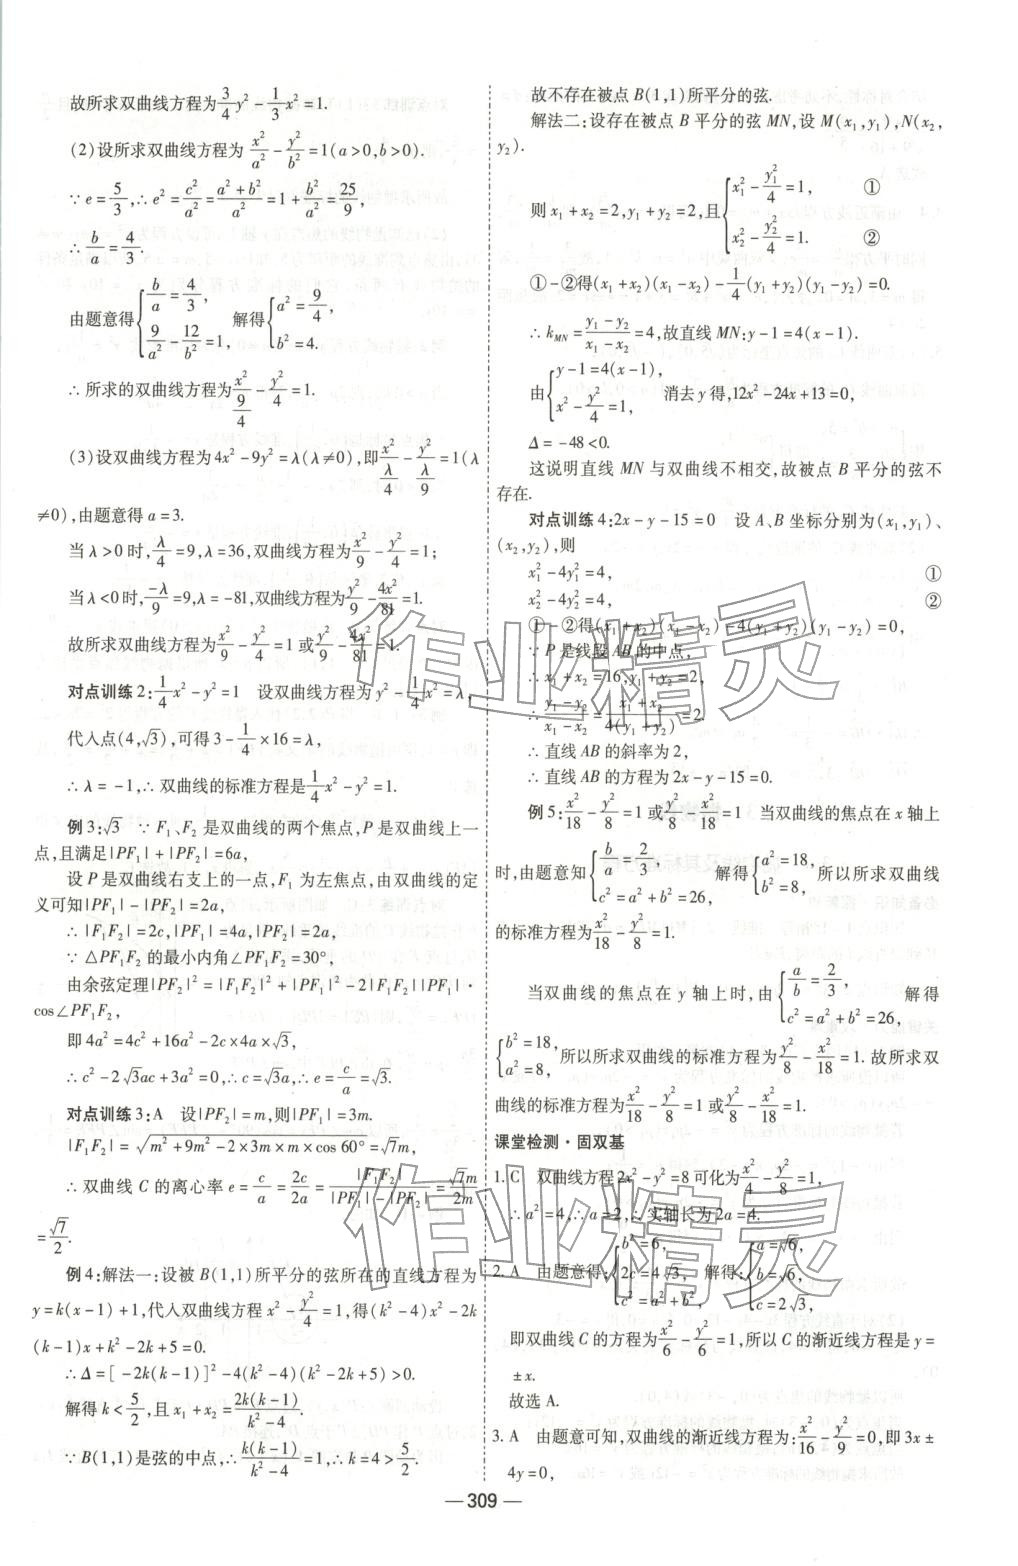 故所求双曲线方程为3/4y²-1/3x²=1.
(2)设所求双曲线方程为x²/a²-y²/b²=1(a>0,b>0).
∵e=5/3,∴e²=c²/a²=(a²+b²)/a²=1+b²/a²=25/9,
∴b/a=4/3.
由题意得{b/a=4/3, 9/a²-12/b²=1, 解得{a²=9/4, b²=4.
∴所求的双曲线方程为x²/(9/4)-y²/4=1.
(3)设双曲线方程为4x²-9y²=λ(λ≠0),即x²/(λ/4)-y²/(λ/9)=1(λ
≠0),由题意得a=3.
当λ>0时,λ/4=9,λ=36,双曲线方程为x²/9-y²/4=1;
当λ<0时,-λ/9=9,λ=-81,双曲线方程为y²/9-4x²/81=1.
故所求双曲线方程为x²/9-y²/4=1或y²/9-4x²/81=1.
对点训练2:1/4x²-y²=1 设双曲线方程为y²-1/4x²=λ,
代入点(4,√3),可得3-1/4×16=λ,
∴λ=-1,∴双曲线的标准方程是1/4x²-y²=1.
例3:√3 ∵F₁、F₂是双曲线的两个焦点,P是双曲线上一
点,且满足|PF₁|+|PF₂|=6a,
设P是双曲线右支上的一点,F₁为左焦点,由双曲线的定
义可知|PF₁|-|PF₂|=2a,
∴|F₁F₂|=2c,|PF₁|=4a,|PF₂|=2a,
∵△PF₁F₂的最小内角∠PF₁F₂=30°,
由余弦定理|PF₂|²=|F₁F₂|²+|PF₁|²-2|F₁F₂||PF₁|·
cos∠PF₁F₂,
即4a²=4c²+16a²-2c×4a×√3,
∴c²-2√3ac+3a²=0,∴c=√3a,∴e=c/a=√3.
对点训练3:A 设|PF₂|=m,则|PF₁|=3m.
|F₁F₂|=√(m²+9m²-2×3m×m×cos60°)=√7m,
∴双曲线C的离心率e=c/a=2c/2a=|F₁F₂|/(|PF₁|-|PF₂|)=√7m/2m
=√7/2.
例4:解法一:设被B(1,1)所平分的弦所在的直线方程为
y=k(x-1)+1,代入双曲线方程x²-y²/4=1,得(k²-4)x²-2k
(k-1)x+k²-2k+5=0.
∴Δ=[-2k(k-1)]²-4(k²-4)(k²-2k+5)>0.
解得k<5/2,且x₁+x₂=2k(k-1)/(k²-4).
∵B(1,1)是弦的中点,∴k(k-1)/(k²-4)=1,∴k=4>5/2.
故不存在被点B(1,1)所平分的弦.
解法二:设存在被点B平分的弦MN,设M(x₁,y₁),N(x₂,
y₂).
则x₁+x₂=2,y₁+y₂=2,且{x₁²-y₁²/4=1, ① x₂²-y₂²/4=1. ②
①-②得(x₁+x₂)(x₁-x₂)-1/4(y₁+y₂)(y₁-y₂)=0.
∴k_MN=(y₁-y₂)/(x₁-x₂)=4,故直线MN:y-1=4(x-1).
由{y-1=4(x-1), x²-y²/4=1, 消去y得,12x²-24x+13=0,
Δ=-48<0.
这说明直线MN与双曲线不相交,故被点B平分的弦不
存在.
对点训练4:2x-y-15=0 设A、B坐标分别为(x₁,y₁)、
(x₂,y₂),则
x₁²-4y₁²=4, ①
x₂²-4y₂²=4, ②
①-②得(x₁+x₂)(x₁-x₂)-4(y₁+y₂)(y₁-y₂)=0,
∵P是线段AB的中点,
∴x₁+x₂=16,y₁+y₂=2,
∴(y₁-y₂)/(x₁-x₂)=(x₁+x₂)/4(y₁+y₂)=2.
∴直线AB的斜率为2,
∴直线AB的方程为2x-y-15=0.
例5:x²/18-y²/8=1或y²/8-x²/18=1 当双曲线的焦点在x轴上
时,由题意知{b/a=2/3, c²=a²+b²=26, 解得{a²=18, b²=8, 所以所求双曲线
的标准方程为x²/18-y²/8=1.
当双曲线的焦点在y轴上时,由{a/b=2/3, c²=a²+b²=26, 解得
{b²=18, a²=8, 所以所求双曲线的标准方程为y²/8-x²/18=1.故所求双
曲线的标准方程为x²/18-y²/8=1或y²/8-x²/18=1.
课堂检测·固双基
1.C 双曲线方程2x²-y²=8可化为x²/4-y²/8=1,
∴a²=4,∴a=2,∴实轴长为2a=4.
2.A 由题意得:{b²=6, 2c=4√3, c²=a²+b², 解得:{a=√6, b=√6, c=2√3,
即双曲线C的方程为x²/6-y²/6=1,所以C的渐近线方程是y=
±x.
故选A.
3.A 由题意可知,双曲线的渐近线方程为:x²/16-y²/9=0,即3x±
4y=0,
— 309 —
作业精灵
作业精灵